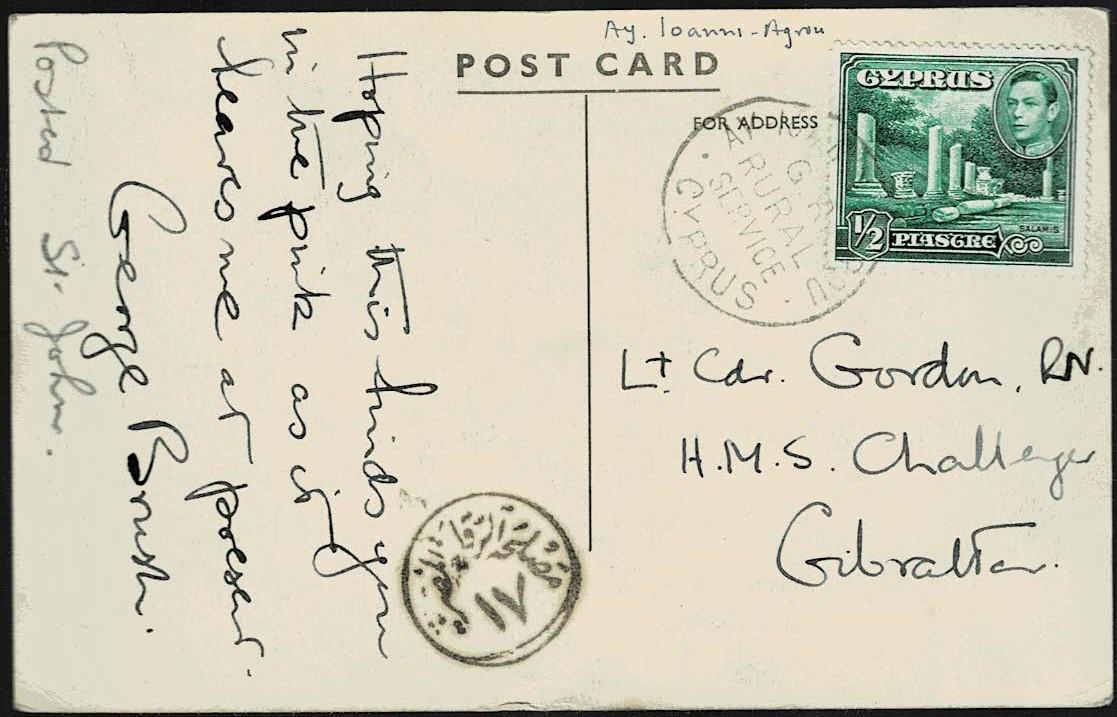 Ay. Ioanni-Agrou
POST CARD
FOR ADDRESS
CYPRUS
SALAMIS
1/2 PIASTRE
G.R.
RURAL
SERVICE
CYPRUS
Lt Cdr. Gordon, RN.
H.M.S. Challenger
Gibraltar.
Hoping this finds you
in the pink as it
leaves me at present.
George Brush.
Posted St. John.
مصلحة الرقابة المصرية
١٧